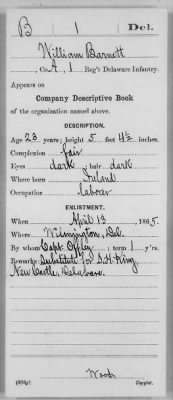 B 1 Del.
William Barnett
, Co. A, 1 Reg't Delaware Infantry.
Appears on
Company Descriptive Book
of the organization named above.
DESCRIPTION.
Age 23 years; height 5 feet 4½ inches.
Complexion fair
Eyes dark; hair dark
Where born Ireland
Occupation laborer
ENLISTMENT.
When April 13, 1865.
Where Wilmington, Del.
By whom Capt. Offley; term 1 y'rs.
Remarks: Substitute for S. H. King,
New Castle, Delaware.
Woods
Copyist.